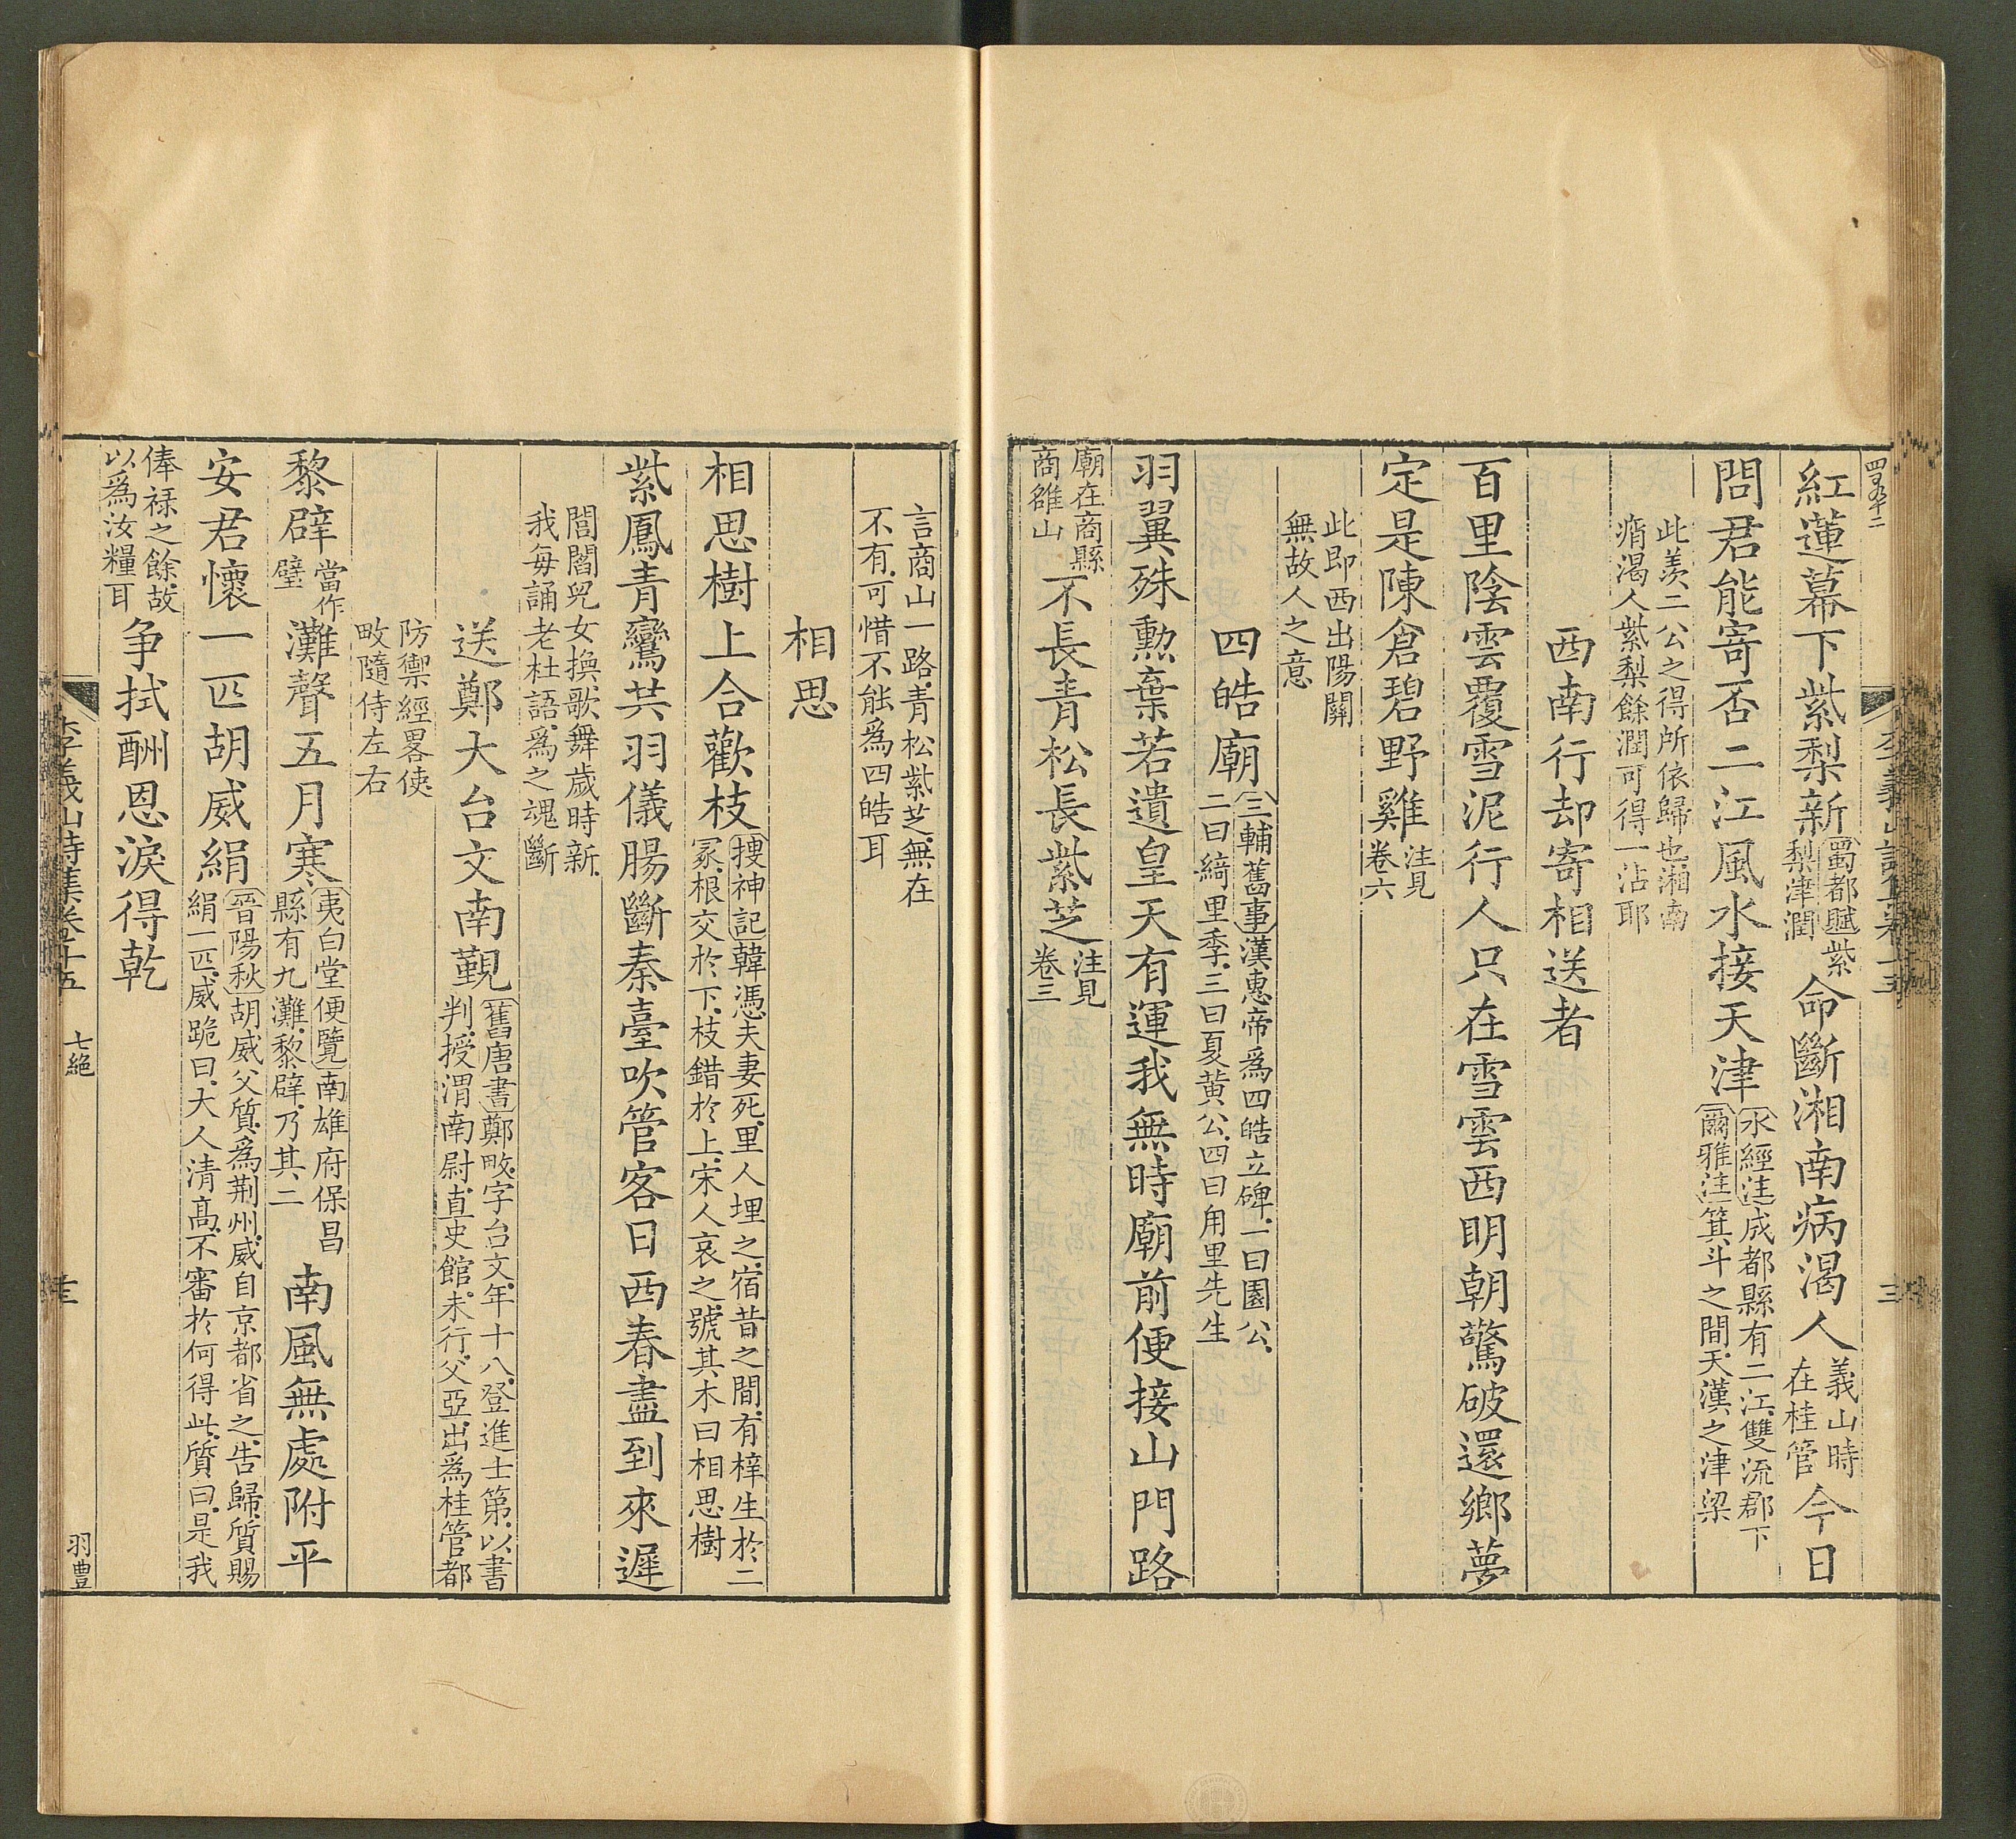 四百九十二
李義山詩集卷十五
三
紅蓮幕下紫梨新蜀都賦紫梨津潤命斷湘南病渴人義山時在桂管今日
問君能寄否二江風水接天津水經注成都縣有二江雙流郡下爾雅注箕斗之間天漢之津梁
此羨二公之得所依歸也湘南痟渴人紫梨餘潤可得一沾耶
西南行却寄相送者
百里陰雲覆雪泥行人只在雪雲西明朝驚破還鄉夢
定是陳倉碧野雞注見卷六
此即西出陽關無故人之意
四皓廟三輔舊事漢惠帝爲四皓立碑一曰園公二曰綺里季三曰夏黄公四曰甪里先生
羽翼殊勲棄若遺皇天有運我無時廟前便接山門路
廟在商縣商雒山不長青松長紫芝注見卷三
言商山一路青松紫芝無在不有可惜不能爲四皓耳
相思
相思樹上合歡枝搜神記韓馮夫妻死里人埋之宿昔之間有梓生於二冢根交於下枝錯於上宋人哀之號其木曰相思樹
紫鳳青鸞共羽儀腸斷秦臺吹管客日西春盡到來遲
閭閻兒女換歌舞歲時新我每誦老杜語爲之魂斷
送鄭大台文南覲舊唐書鄭畋字台文年十八登進士第以書判授渭南尉直史館未行父亞出爲桂管都
防禦經畧使畋隨侍左右
黎辟當作璧灘聲五月寒夷白堂便覽南雄府保昌縣有九灘黎辟乃其二南風無處附平
安君懷一匹胡威絹晉陽秋胡威父質爲荆州威自京都省之告歸質賜絹一匹威跪曰大人清高不審於何得此質曰是我
俸禄之餘故以爲汝糧耳争拭酬恩淚得乾
李義山詩集卷十五
七絶
三
羽豊